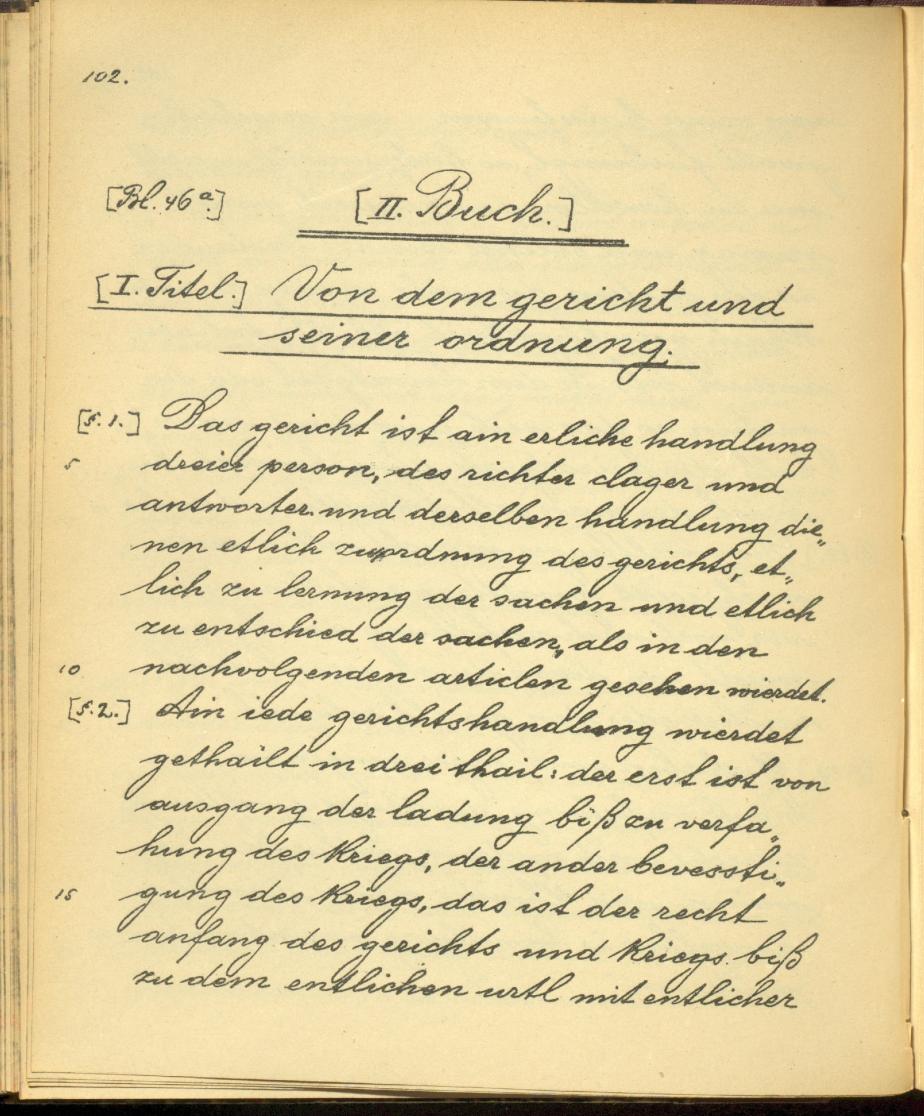 102.
[Bl. 46a.] [II. Buch.]
[I. Titel.] Von dem gericht und
seiner ordnung.
[§. 1.] Das gericht ist ain erliche handlung
5 dreier person, des richter clager und
antworter und derselben handlung die„
nen etlich zu ordnung des gerichts, et„
lich zu lernung der sachen und etlich
zu entschied der sachen, als in den
10 nachvolgenden articlen gesehen wierdet.
[§. 2.] Ain iede gerichtshandlung wierdet
gethailt in drei thail: der erst ist von
ausgang der ladung biß zu verfa„
hung des kriegs, der ander bevessti„
15 gung des kriegs, das ist der recht
anfang des gerichts und kriegs biß
zu dem entlichen urtl mit entlicher